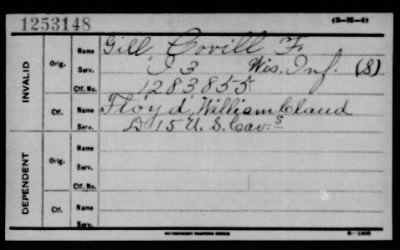 1253148
(3-35-4)
INVALID
Orig.
Name Gill Covill F
Serv. 3 Wis. Inf. (S)
Ctf. No. 1283855
Ctf.
Name Floyd, William Claud
Serv. D 15 U. S. Cav. s
DEPENDENT
Orig.
Name
Serv.
Ctf. No.
Ctf.
Name
Serv.
GOVERNMENT PRINTING OFFICE